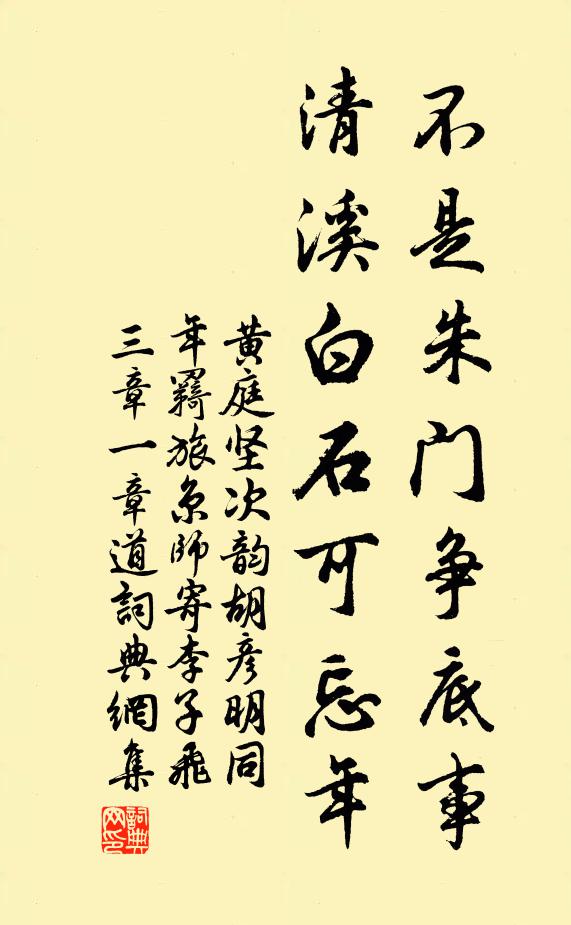 不是朱门争底事
清溪白石可忘年
黄庭坚次韵胡彦明同
年羇旅京师寄李子飛
三章一章道詞典網集
詞典网印